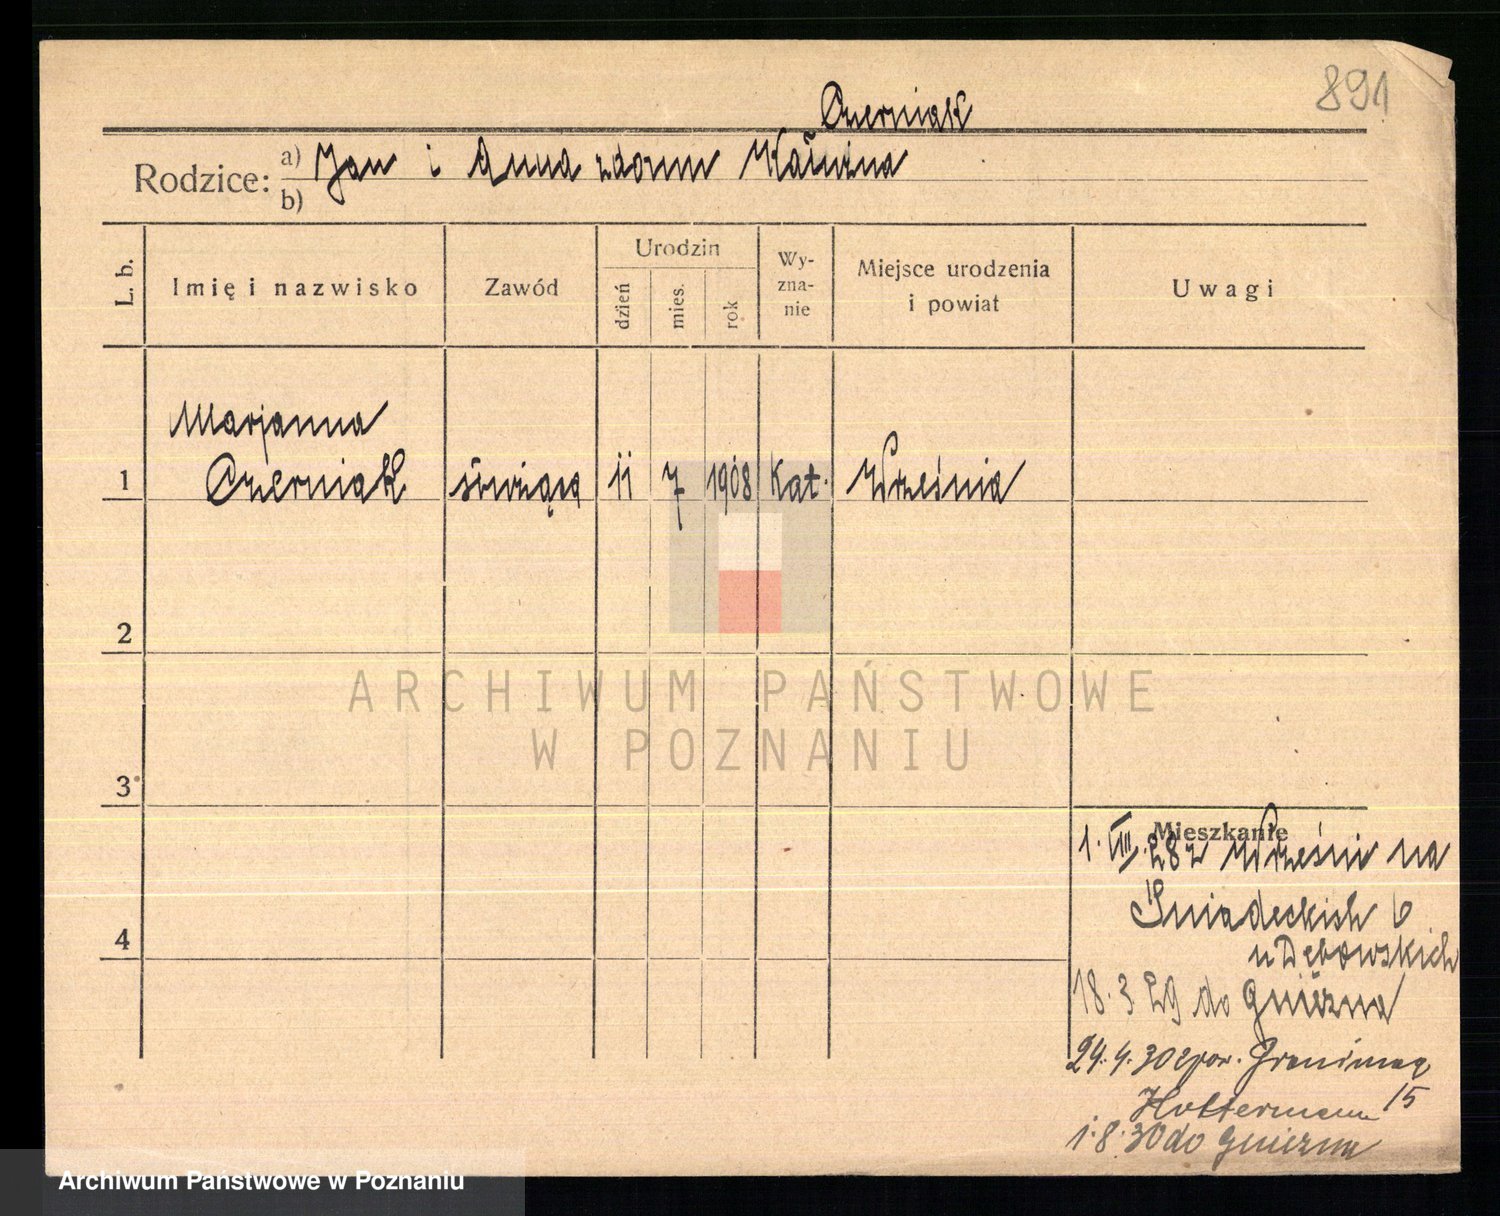 891
Czerniak
Rodzice: a) Jan i Anna z domu Kałużna
b)
L. b. Imię i nazwisko Zawód Urodzin dzień mies. rok Wy-zna-nie Miejsce urodzenia i powiat Uwagi
Marjanna
1 Czerniak służąca 11 7 1908 Kat. Września
2
ARCHIWUM PAŃSTWOWE
W POZNANIU
3
Mieszkanie
1. VIII. 28 z Wrześni na
Śniadeckich 6
4
u Dębowskich
18. 3 29 do Gniezna
24. 4. 30
15
1. 8. 30 do Gniezna
Archiwum Państwowe w Poznaniu